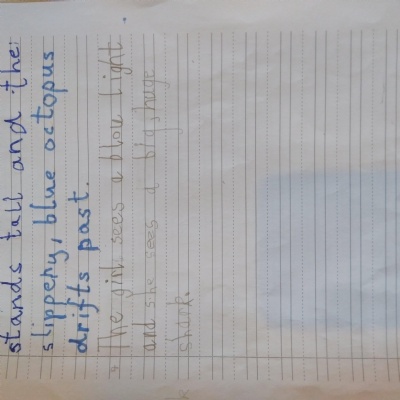 stands tall and the
slippery, blue octopus
drifts past.
The girl sees a blow light
and she sees a big, huge
shark.